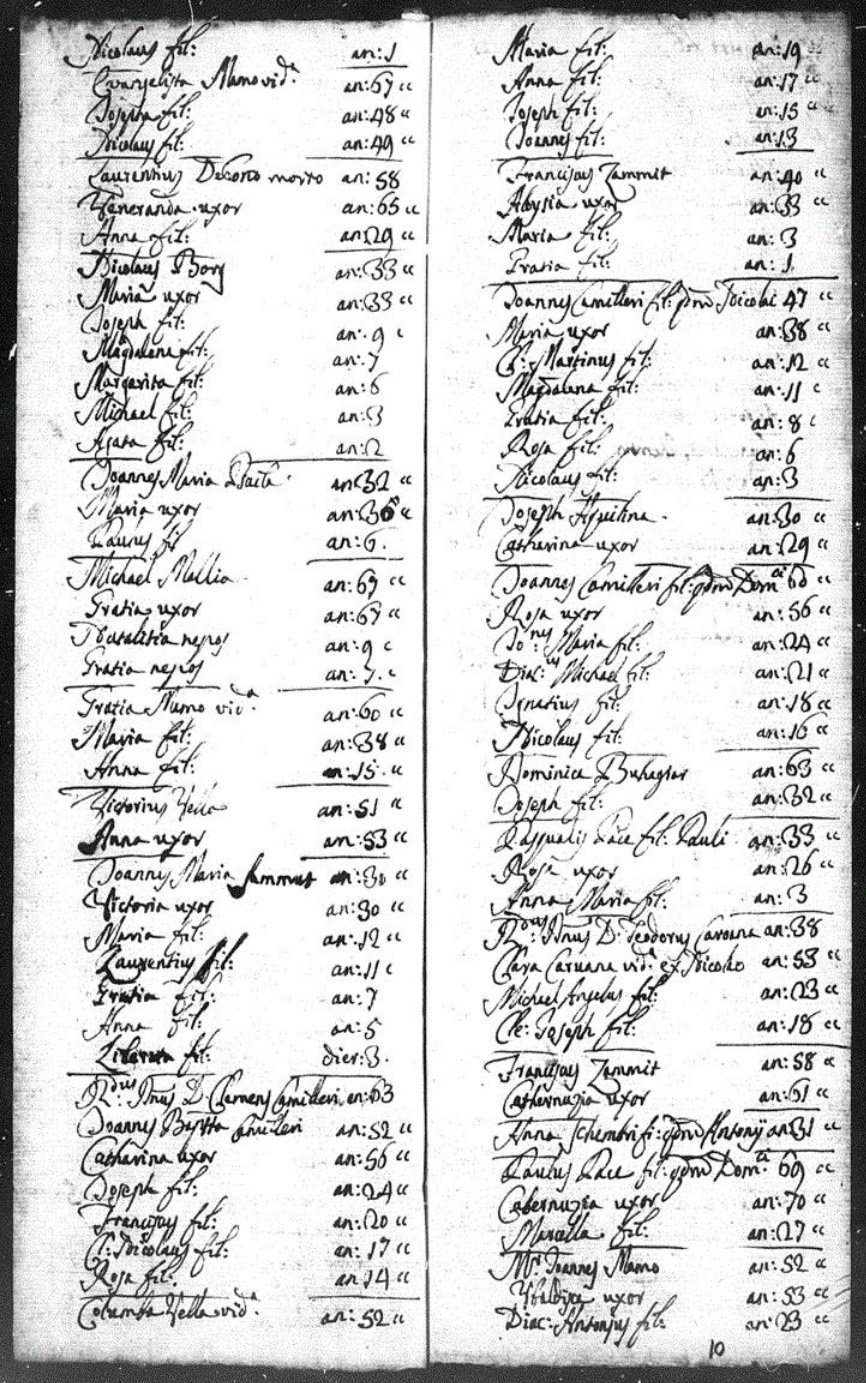 Nicolaus fil: an: 1
Evangelista Mamo vid.ª an: 67 cc
Josepha fil: an: 48 cc
Nicolaus fil: an: 49 cc
Laurentius DeCono morro an: 58
Veneranda uxor an: 65 cc
Anna fil: an: 29 cc
Nicolaus Borg an: 33 cc
Maria uxor an: 33 cc
Joseph fil: an: 9 c
Magdalena fil: an: 7
Margarita fil: an: 6
Michael fil: an: 3
Agata fil: an: 2
Joannes Maria an: 32 cc
Maria uxor an: 36 cc
Paulus fil an: 6.
Michael Mallia an: 67 cc
Gratia uxor an: 67 cc
Natalitia nepos an: 9 c
Gratia nepos an: 7. c
Gratia Mamo vid.ª an: 60 cc
Maria fil: an: 38 cc
Anna fil: an: 15. cc
Victorius Vella an: 51 cc
Anna uxor an: 53 cc
Joannes Maria Sammut an: 30 cc
Victoria uxor an: 30 cc
Maria fil: an: 12 cc
Laurentius fil: an: 11 c
Gratia fil: an: 7
Anna fil: an: 5
fil: dier: 3.
R:dus Dnus D. Clemens Camilleri an: 63
Joannes Bapttа Camilleri an: 52 cc
Catharina uxor an: 56 cc
Joseph fil: an: 24 cc
Franciscus fil: an: 20 cc
Cl: Nicolaus fil: an: 17 cc
Rosa fil: an 14 cc
Columba Vella vid.ª an: 52 cc
Maria fil: an: 19
Anna fil: an: 17 cc
Joseph fil: an: 15 cc
Joannes fil: an: 13
Franciscus Zammit an: 40 cc
Aloysia uxor an: 33 cc
Maria fil: an: 3
Gratia fil: an: 1.
Joannes Camilleri fil: qdm Nicolai 47 cc
Maria uxor an: 38 cc
Cl: Martinus fil: an: 12 cc
Magdalena fil: an: 11 c
Gratia fil: an: 8 c
Rosa fil: an: 6
Nicolaus fil: an: 3
Joseph Aquilina. an: 30 cc
Catharina uxor an: 29 cc
Joannes Camilleri fil: qdm Domci 60 cc
Rosa uxor an: 56 cc
Jo:nes Maria fil: an: 24 cc
Diac:us Michael fil: an: 21 cc
Ignatius fil: an: 18 cc
Nicolaus fil: an: 16 cc
Dominica Buhagiar an: 63 cc
Joseph fil: an: 32 cc
Pasqualis Pace fil: Pauli an: 33 cc
Rosa uxor an: 26 cc
Anna Maria fil: an: 3
R:dus Dnus D. Teodorus Caroana an: 38
Clara Caruana vid.ª ex Nicolao an: 53 cc
Michael Angelus fil: an: 23 cc
Cle: Joseph fil: an: 18 cc
Franciscus Zammit an: 58 cc
Cathernuzia uxor an: 61 cc
Anna Schembri fi: qdm Antonij an 31 cc
Paulus Pace fil: qdm Dom:ci 69 cc
Cathernuzia uxor an: 70 cc
Marcella fil: an: 27 cc
Mr. Joannes Mamo an: 52 cc
Ubaldesca uxor an: 53 cc
Diac: Antonius fil: an: 23 cc
10